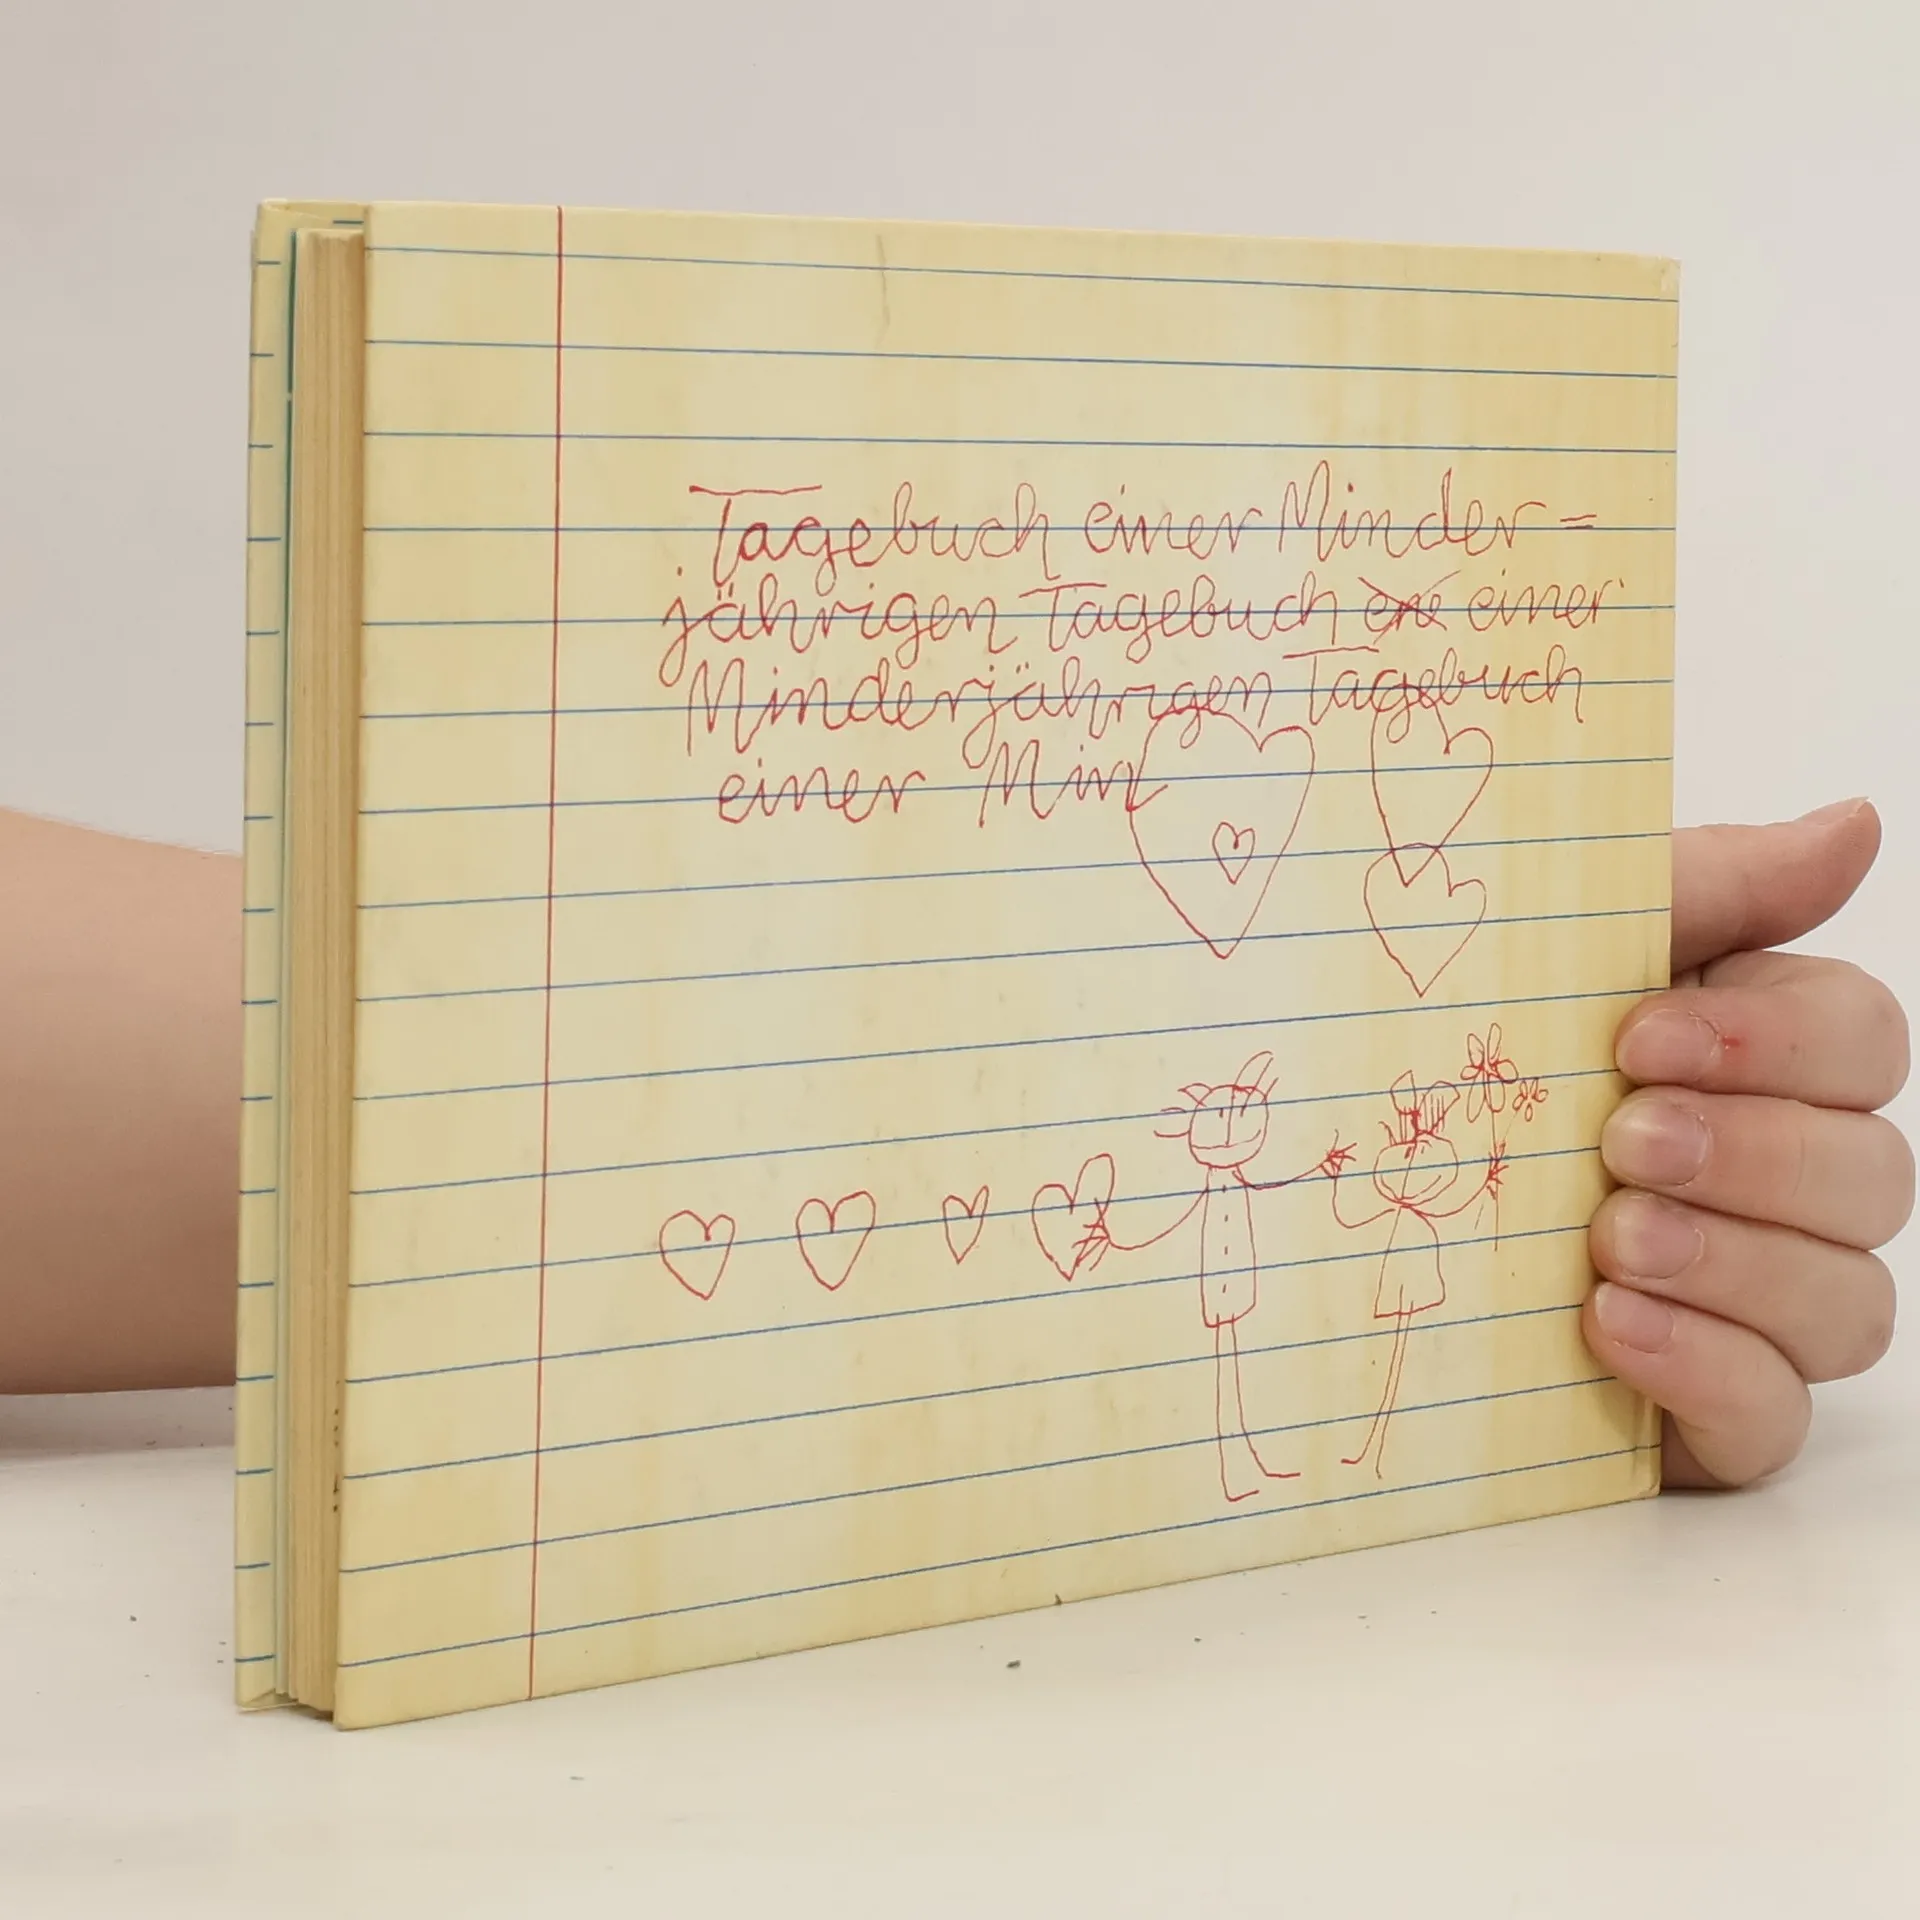 Tagebuch einer Minder=
jährigen Tagebuch ene einer
Minderjährigen Tagebuch
einer Min